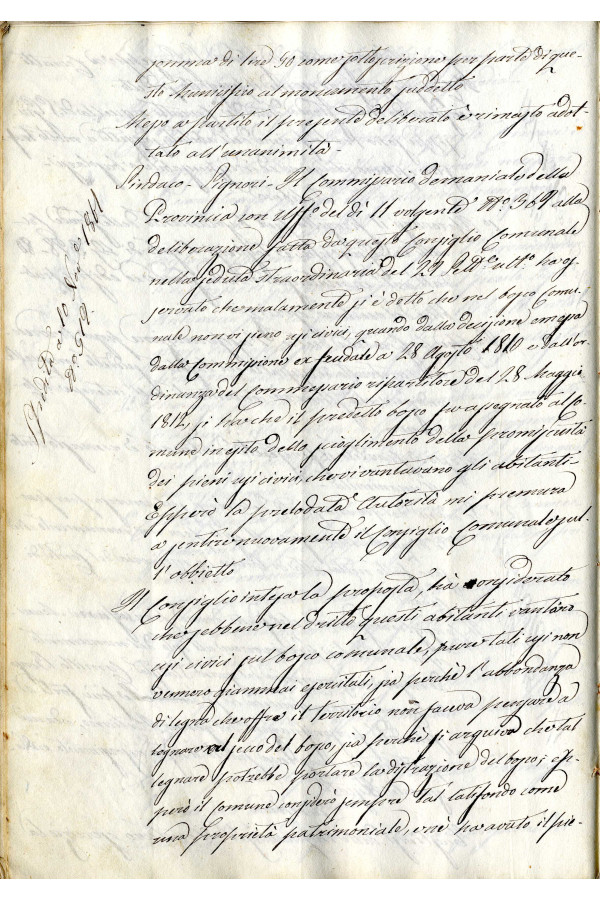 somma di lire 50 come sottoscrizione per parte di que-
sto Municipio al monumento suddetto
Messo a partito il presente deliberato è rimasto adot-
tato all'unanimità.
Sindaco - Signori - Il Commissario demaniale della
Provincia con Uffo del dì 11 volgente No 369 alla
deliberazione fatta da questo Consiglio Comunale
nella seduta straordinaria del 29 Sette ulto ha os-
servato che malamente si è detto che nel bosco Comu-
nale non vi sieno usi civici, quando dalla decisione emessa
dalla Commissione ex feudale a 28 Agosto 1810 e dall'or-
dinanza del Commessario ripartitore del 28 Maggio
1812, si ha che il predetto bosco fu assegnato al Co-
mune in esito dello scioglimento della promiscuità
dei pieni usi civici che vi vantavano gli abitanti -
Epperò la prelodata Autorità mi premura
a sentire nuovamente il Consiglio Comunale sul-
l'obbietto
Il Consiglio intesa la proposta, ha considerato
che sebbene nel dritto questi abitanti vantano
usi civici sul bosco comunale, pure tali usi non
vennero giammai esercitati, sia perchè l'abbondanza
di legna che offre il territorio non faceva pensare a
legnare nel secco del bosco, sia perchè si arguiva che tal
legnare potrebbe portare la distrazione del bosco; ep-
però il Comune considerò sempre tal latifondo come
una proprietà patrimoniale, e ne ha avuto il pie-
Spedita a 10 1811
No 512